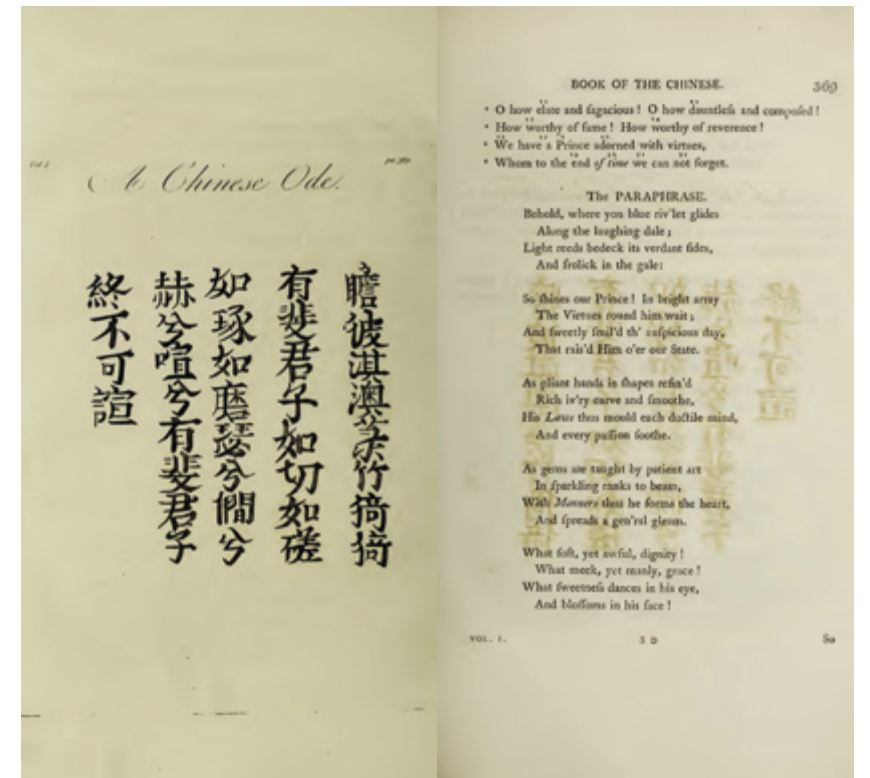 A Chinese Ode.
瞻彼淇澳菉竹猗猗
有斐君子如切如磋
如琢如磨瑟兮僩兮
赫兮喧兮有斐君子
終不可諠
BOOK OF THE CHINESE. 369
‘ O how elate and ſagacious! O how dauntleſs and compoſed!
‘ How worthy of fame! How worthy of reverence!
‘ We have a Prince adorned with virtues,
‘ Whom to the end of time we can not forget.
The PARAPHRASE.
Behold, where yon blue riv'let glides
Along the laughing dale;
Light reeds bedeck its verdant ſides,
And frolick in the gale:
So ſhines our Prince! In bright array
The Virtues round him wait;
And ſweetly ſmil'd th' auſpicious day,
That rais'd Him o'er our State.
As pliant hands in ſhapes refin'd
Rich iv'ry carve and ſmoothe,
His Laws thus mould each ductile mind,
And every paſſion ſoothe.
As gems are taught by patient art
In ſparkling ranks to beam,
With Manners thus he forms the heart,
And ſpreads a gen'ral gleam.
What ſoft, yet awful, dignity!
What meek, yet manly, grace!
What ſweetneſs dances in his eye,
And bloſſoms in his face!
VOL. I. 3 D So